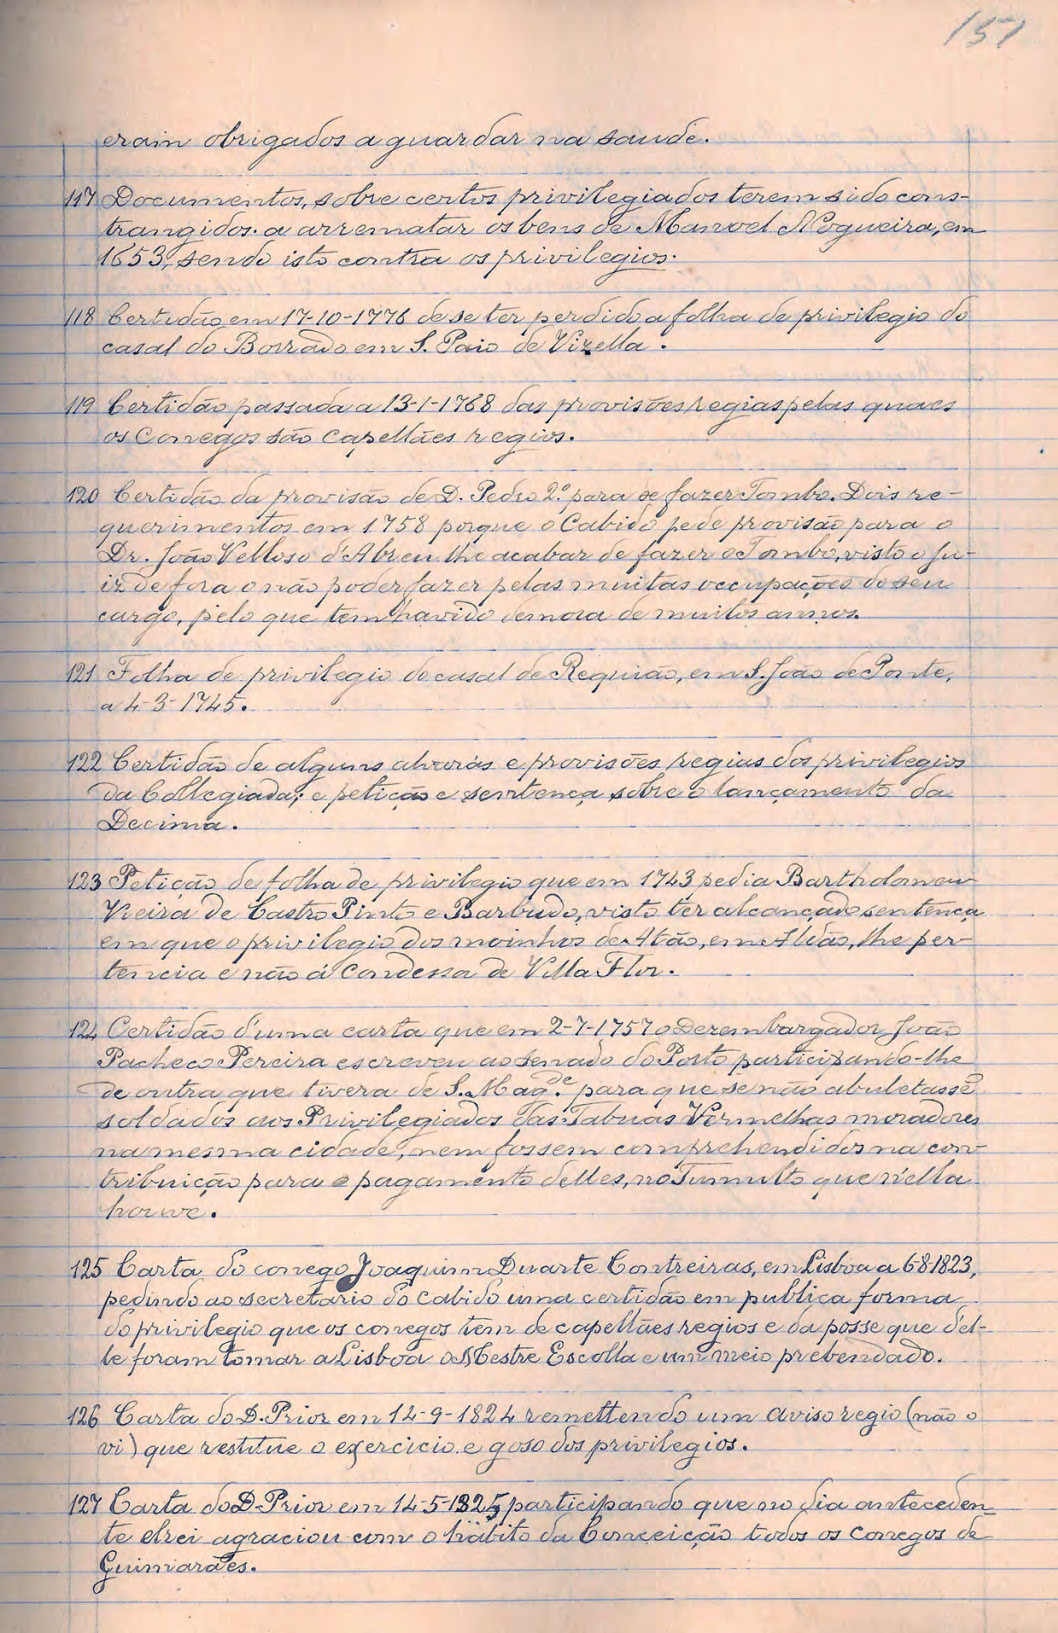 151
eram obrigados a guardar na saude.
117 Documentos, sobre certos privilegiados terem sido cons-
trangidos a arrematar os bens de Manoel Nogueira, em
1653, sendo isto contra os privilegios.
118 Certidão em 17-10-1776 de se ter perdido a folha de privilegio do
casal do Borrado em S. Paio de Vizella.
119 Certidão passada a 13-1-1768 das provisões regias pelas quaes
os Conegos são capellães regios.
120 Certidão da provisão de D. Pedro 2º para se fazer Tombo. Dois re-
querimentos em 1758 porque o Cabido pede provisão para o
Dr. João Velloso d'Abreu lhe acabar de fazer o Tombo, visto o Ju-
iz de fora o não poder fazer pelas muitas occupações do seu
cargo, pelo que tem havido demora de muitos annos.
121 Folha de privilegio do casal de Requião, em S. João de Ponte,
a 4-3-1745.
122 Certidão de alguns alvarás e provisões regias dos privilegios
da Collegiada; e petição e sentença sobre o lançamento da
Decima.
123 Petição de folha de privilegio que em 1743 pedia Bartholomeu
Vieira de Castro Pinto e Barbudo, visto ter alcançado sentença
em que o privilegio dos moinhos de Atão, em Aldão, lhe per-
tencia e não á Condessa de Villa Flor.
124 Certidão d'uma carta que em 2-7-1757 o Dezembargador João
Pacheco Pereira escreveu ao senado do Porto participando-lhe
de outra que tivera de S. Mag.de para que se não abuletasse
soldados aos Privilegiados das Tabuas Vermelhas moradores
na mesma cidade, nem fossem comprehendidos na con-
tribuição para o pagamento delles, no Tumulto que n'ella
houve.
125 Carta do conego Joaquim Duarte Contreiras, em Lisboa a 6-8-1823,
pedindo ao secretario do cabido uma certidão em publica forma
do privilegio que os conegos têm de capellães regios e da posse que d'el-
le foram tomar a Lisboa o Mestre Escolla e um meio prebendado.
126 Carta do D. Prior em 14-9-1824 remettendo um aviso regio (não o
vi) que restitue o exercicio e goso dos privilegios.
127 Carta do D. Prior em 14-5-1825, participando que no dia anteceden-
te elrei agraciou com o habito da Conceição todos os conegos de
Guimarães.